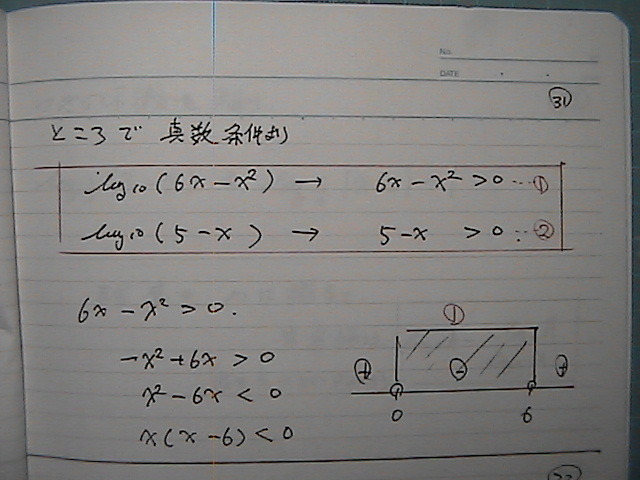 No.
DATE
31
ところで 真数条件より
log10(6x-x²) → 6x-x²>0 … ①
log10(5-x) → 5-x >0 … ②
6x-x²>0.
-x²+6x>0
x²-6x<0
x(x-6)<0
①
+ - +
0 6